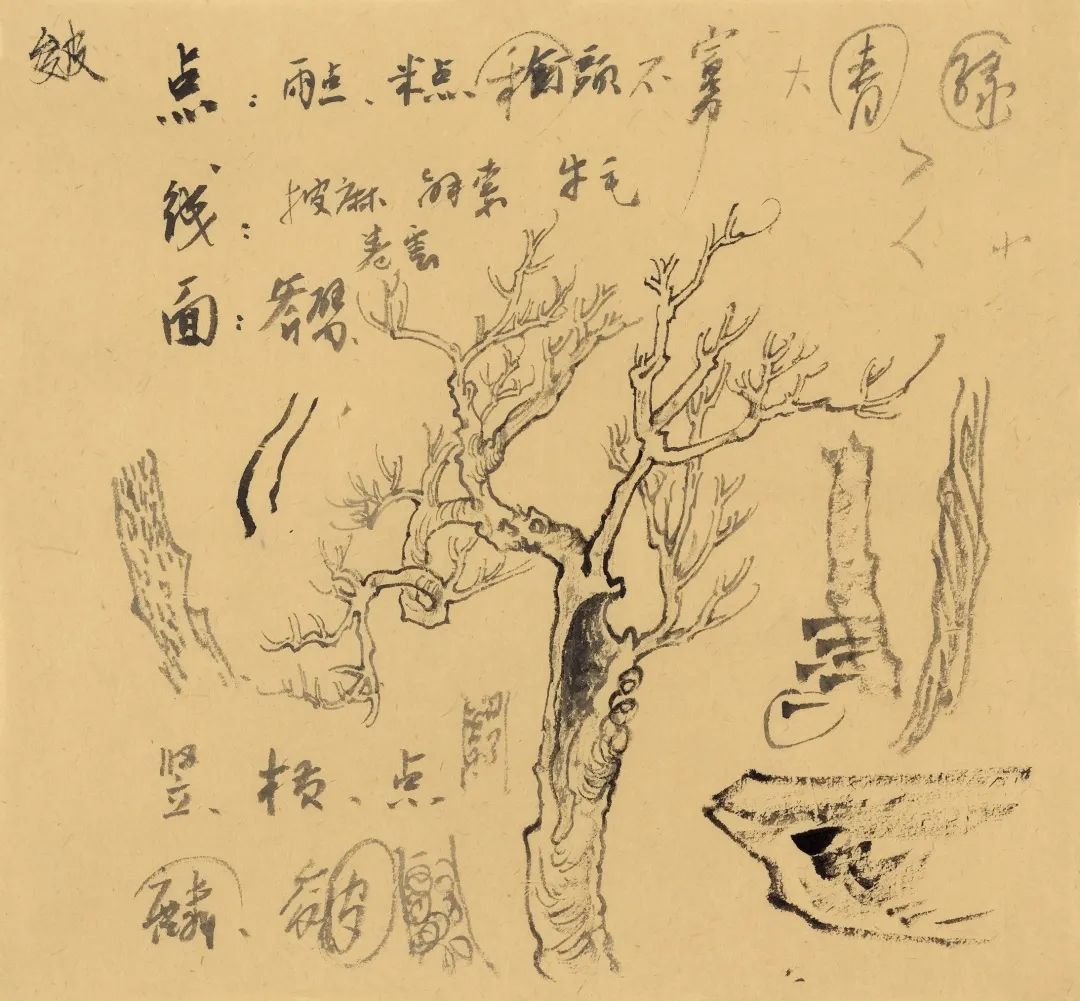 皴
点：雨点、米点、 頭不 大 青 绿
人
人 小
线：披麻 解索 牛毛
卷雲
面：斧劈、
竖、横、点、
鳞、 皮